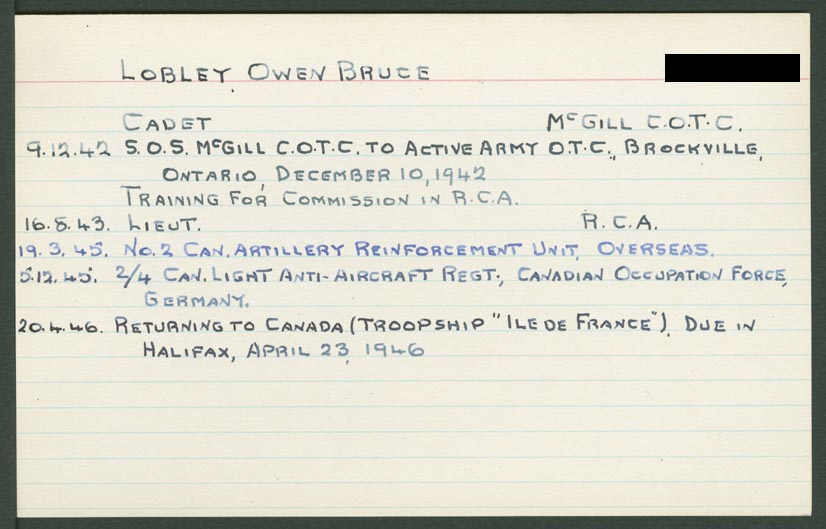 LOBLEY, OWEN BRUCE
CADET McGILL C.O.T.C.
9.12.42 S.O.S. McGILL C.O.T.C. TO ACTIVE ARMY O.T.C., BROCKVILLE,
ONTARIO, DECEMBER 10, 1942
TRAINING FOR COMMISSION IN R.C.A.
16.8.43. LIEUT. R.C.A.
19.3.45. No. 2 CAN. ARTILLERY REINFORCEMENT UNIT, OVERSEAS.
5.12.45. 2/4 CAN. LIGHT ANTI-AIRCRAFT REGT., CANADIAN OCCUPATION FORCE,
GERMANY.
20.4.46. RETURNING TO CANADA (TROOPSHIP "ILE DE FRANCE"), DUE IN
HALIFAX, APRIL 23, 1946